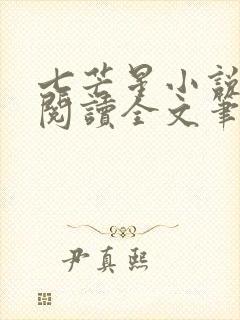 七芒星小說
閱讀全文筆
尹真熙